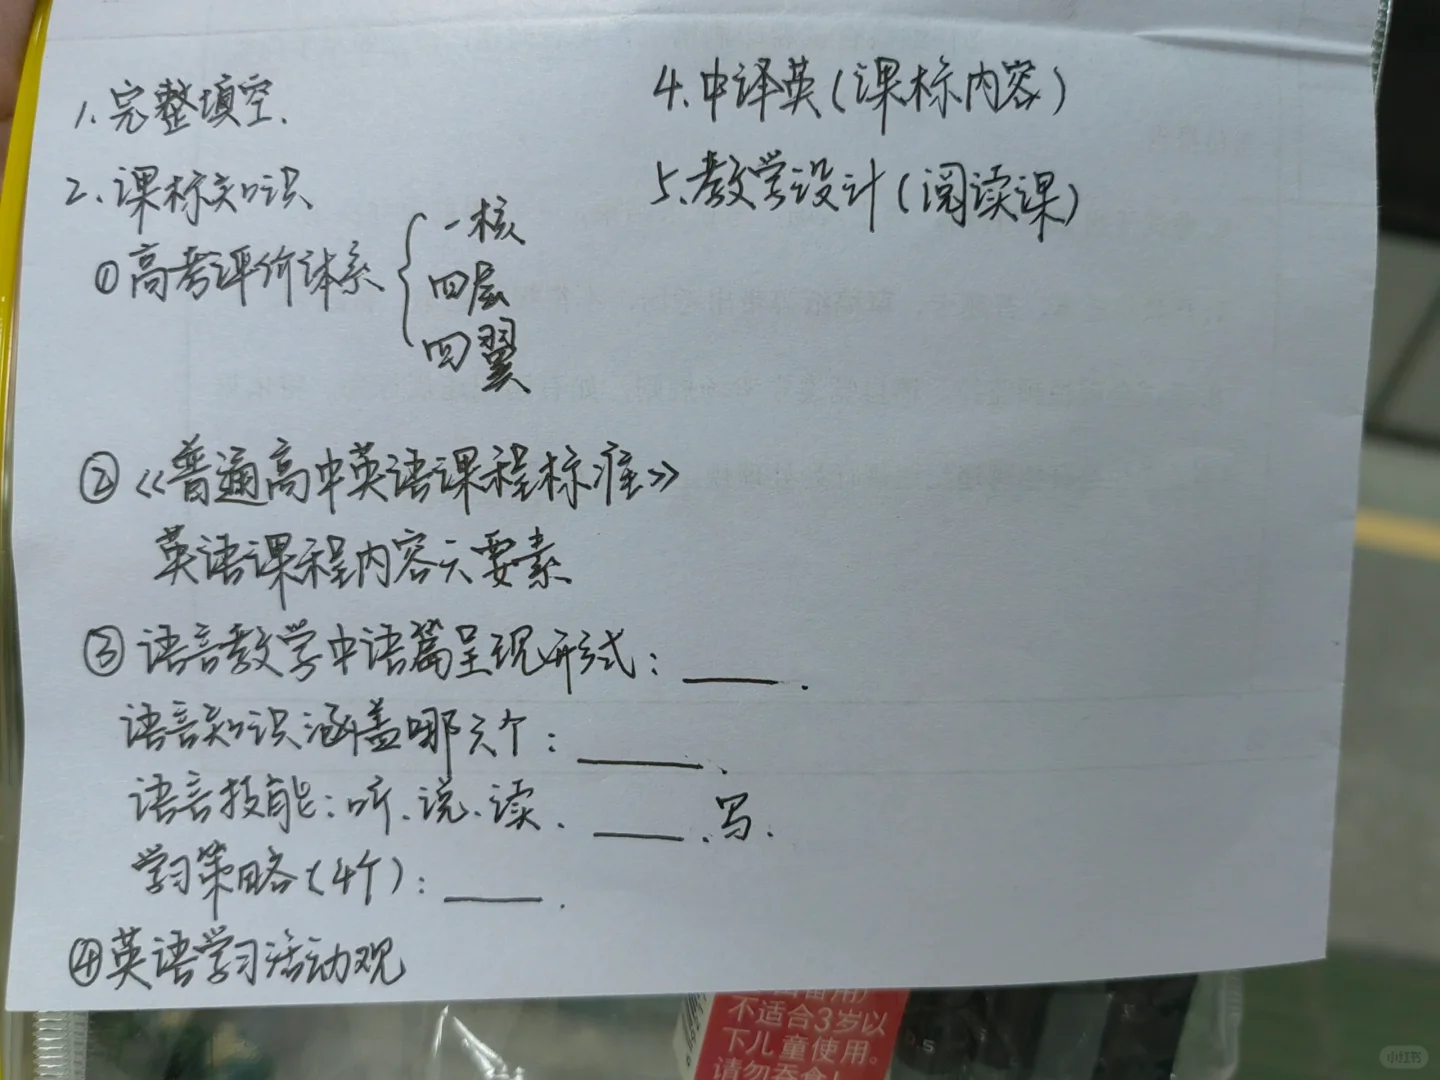 1.完整填空.
2.课标知识
①高考评价体系
一核
四层
四翼
②《普通高中英语课程标准》
英语课程内容六要素
③语言教学中语篇呈现形式：____.
语言知识涵盖哪六个：____.
语言技能：听、说、读、____、写.
学习策略(4个)：____.
④英语学习活动观
4.中译英(课标内容)
5.教学设计(阅读课)
不适合3岁以
下儿童使用。
请勿吞食！
小红书